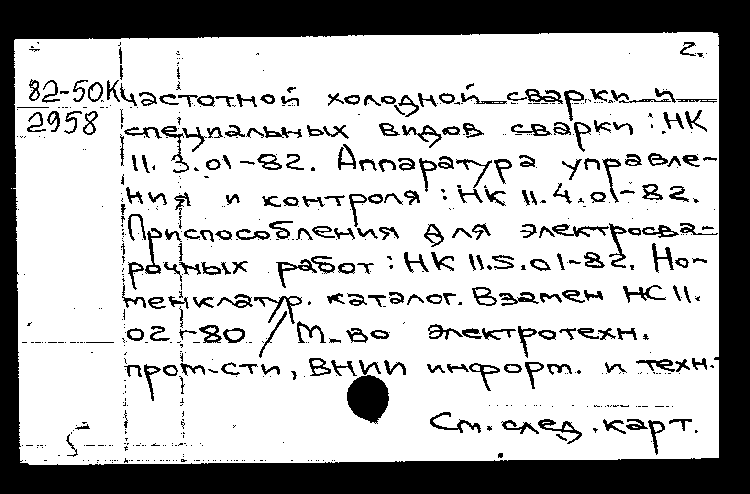 2.
82-50К частотной холодной сварки и
2958 специальных видов сварки : НК
11.3.01-82. Аппаратура управле-
ния и контроля : НК 11.4.01-82.
Приспособления для электросва-
рочных работ : НК 11.5.01-82. Но-
менклатур. каталог. Взамен НС11.
02-80 // М-во электротехн.
пром-сти, ВНИИ информ. и техн.-
См. след. карт.
5